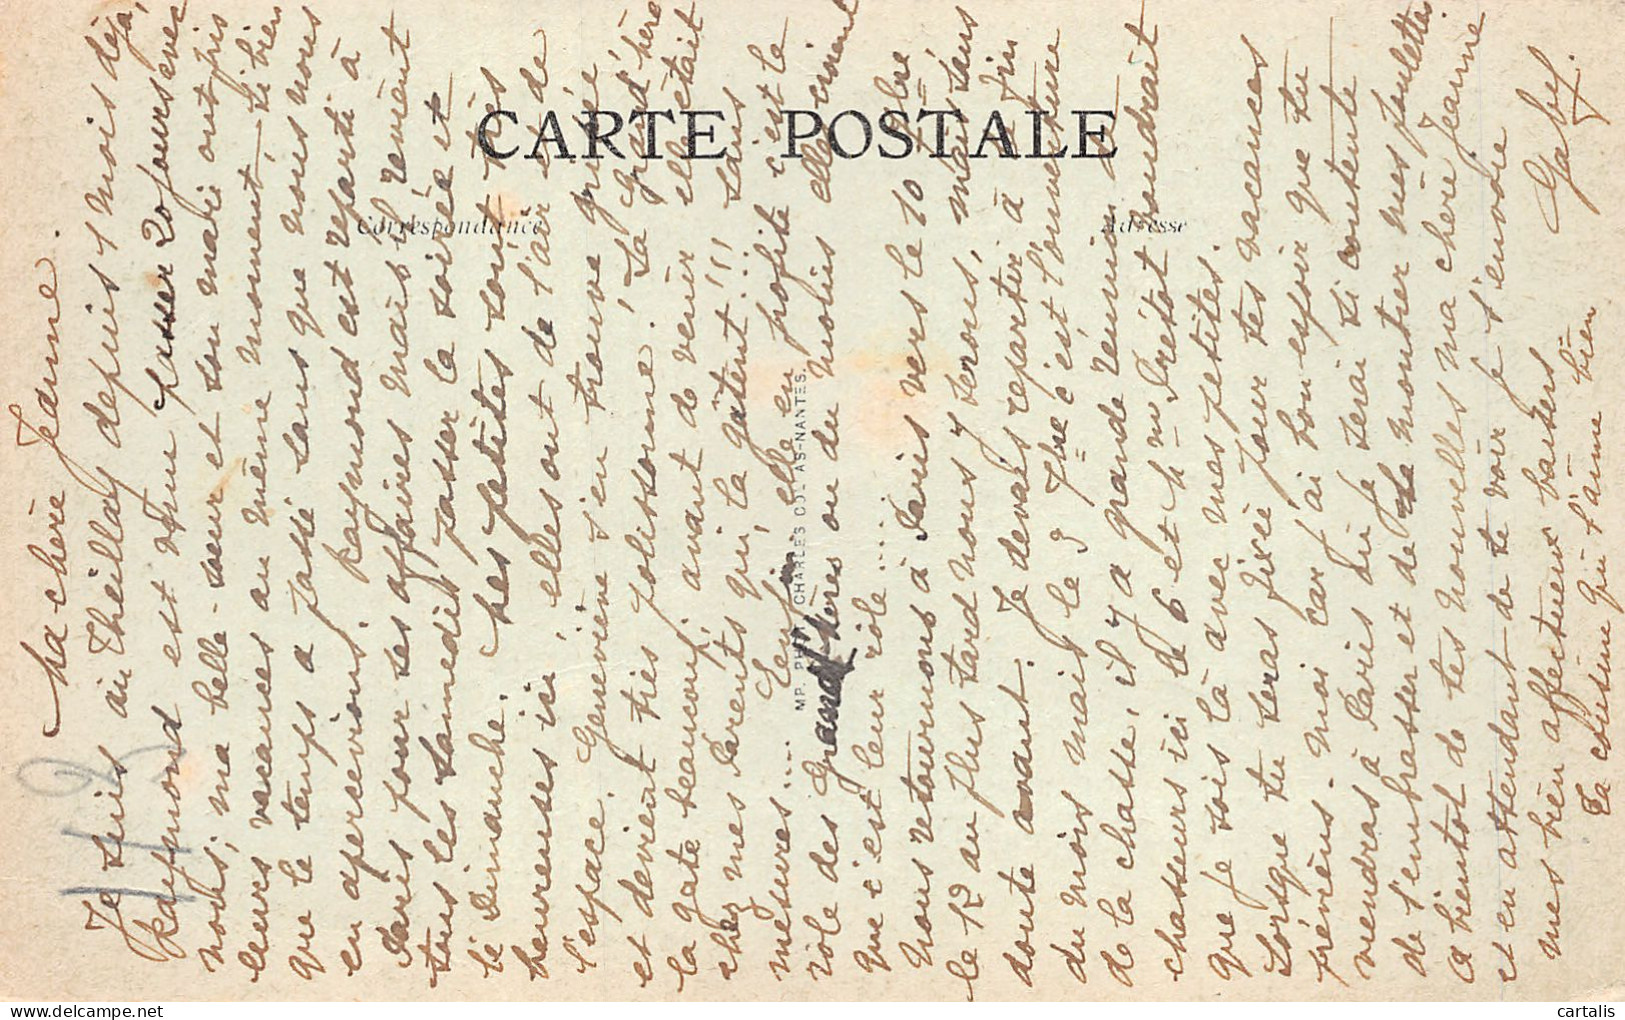 Ma chère Jeanne.
Je suis au Theillay depuis 1 mois déjà,
Raymond est venu passer 20 jours avec
nous, ma belle-sœur et son mari ont pris
leurs vacances au même moment, si bien
que le temps a passé sans que nous nous
en apercevions. Raymond est reparti à
Paris pour ses affaires mais il revient
tous les samedis passer la soirée et
le Dimanche. Les petites sont très
heureuses ici, elles ont de l'air et de
l'espace. Geneviève s'en trouve grisée
et devient très polissonne! La Grd'mère
la gâte beaucoup, avant de venir elle était
chez mes Parents qui la gâtent!!! sans
mesures.... Enfin elle en profite c'est le
rôle des Grand'Mères ou du moins elles croient
que c'est leur rôle....
Nous retournons à Paris vers le 10 8bre
le 12 au plus tard nous y serons, mais sans
doute avant. Je devais repartir à fin
du mois mais le 3 8bre c'est l'ouverture
de la chasse, il y a grande réunion de
chasseurs ici le 6 et Mme Prétot voudrait
que je sois là avec mes petites.
Lorsque tu seras fixée pour tes vacances
préviens-moi car j'ai bon espoir que tu
viendras à Paris où je serai si contente
de t'embrasser et de te montrer mes poulettes.
A bientôt de tes nouvelles ma chère Jeanne
et en attendant de te voir je t'envoie
mes bien affectueux baisers
Ta cousine qui t'aime bien
Gaby.
CARTE POSTALE
Correspondance
Adresse
IMP. PHOT. CHARLES COLLAS-NANTES.
113
cartalis